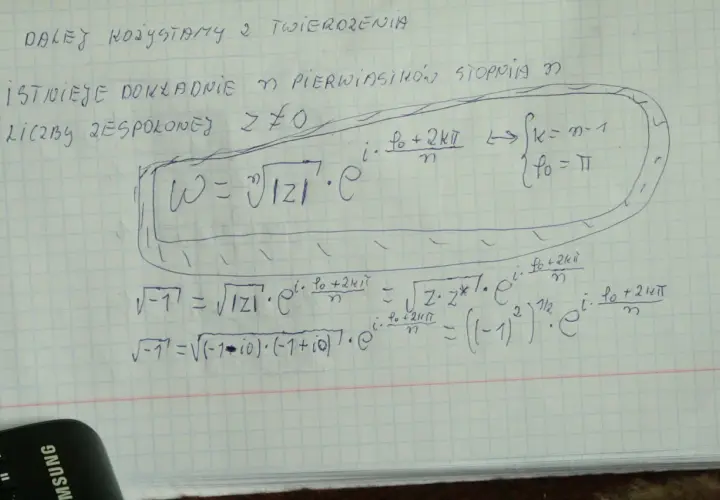 DALEJ KOŻYSTAMY Z TWIERDZENIA
ISTNIEJE DOKŁADNIE n PIERWIASTKÓW STOPNIA n
LICZBY ZESPOLONEJ Z ≠ 0
W = ⁿ√|Z| · e^(i · (φ₀ + 2kπ)/n) ↔ { k = n - 1
φ₀ = π
√-1 = √|Z| · e^(i · (φ₀ + 2kπ)/n) = √(Z · Z*) · e^(i · (φ₀ + 2kπ)/n)
√-1 = √((-1-i0) · (-1+i0)) · e^(i · (φ₀ + 2kπ)/n) = ((-1)²)^(1/2) · e^(i · (φ₀ + 2kπ)/n)
MSUNG